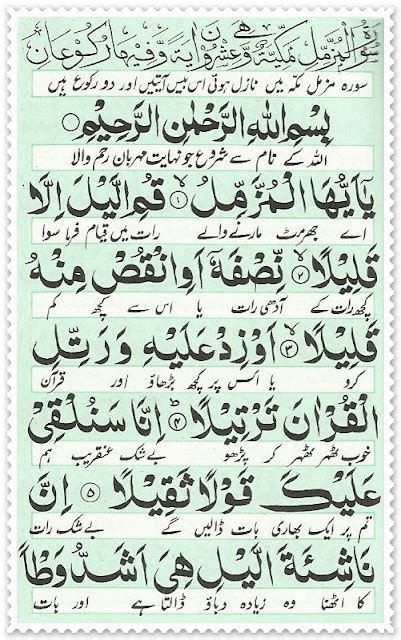 سورة المزمل مكية وهي عشرون اية وفيها ركوعان
سورہ مزمل مکہ میں نازل ہوئی اس میں بیس آیتیں اور دو رکوع ہیں
بِسْمِ اللهِ الرَّحْمٰنِ الرَّحِيْمِ
اللہ کے نام سے شروع جو نہایت مہربان رحم والا
يٰۤاَيُّهَا الْمُزَّمِّلُ ۙ﴿۱﴾ قُمِ الَّيْلَ اِلَّا
اے جھرمٹ مارنے والے رات میں قیام فرما سوا
قَلِيْلًا ۙ﴿۲﴾ نِّصْفَهٗۤ اَوِ انْقُصْ مِنْهُ
کچھ رات کے آدھی رات یا اس سے کچھ کم
قَلِيْلًا ۙ﴿۳﴾ اَوْ زِدْ عَلَيْهِ وَ رَتِّلِ
کرو یا اس پر کچھ بڑھاؤ اور قرآن
الْقُرْاٰنَ تَرْتِيْلًا ؕ﴿۴﴾ اِنَّا سَنُلْقِيْ
خوب ٹھہر ٹھہر کر پڑھو بےشک عنقریب ہم
عَلَيْكَ قَوْلًا ثَقِيْلًا ﴿۵﴾ اِنَّ
تم پر ایک بھاری بات ڈالیں گے بےشک رات
نَاشِئَةَ الَّيْلِ هِيَ اَشَدُّ وَطْاً
کا اٹھنا وہ زیادہ دباؤ ڈالتا ہے اور بات